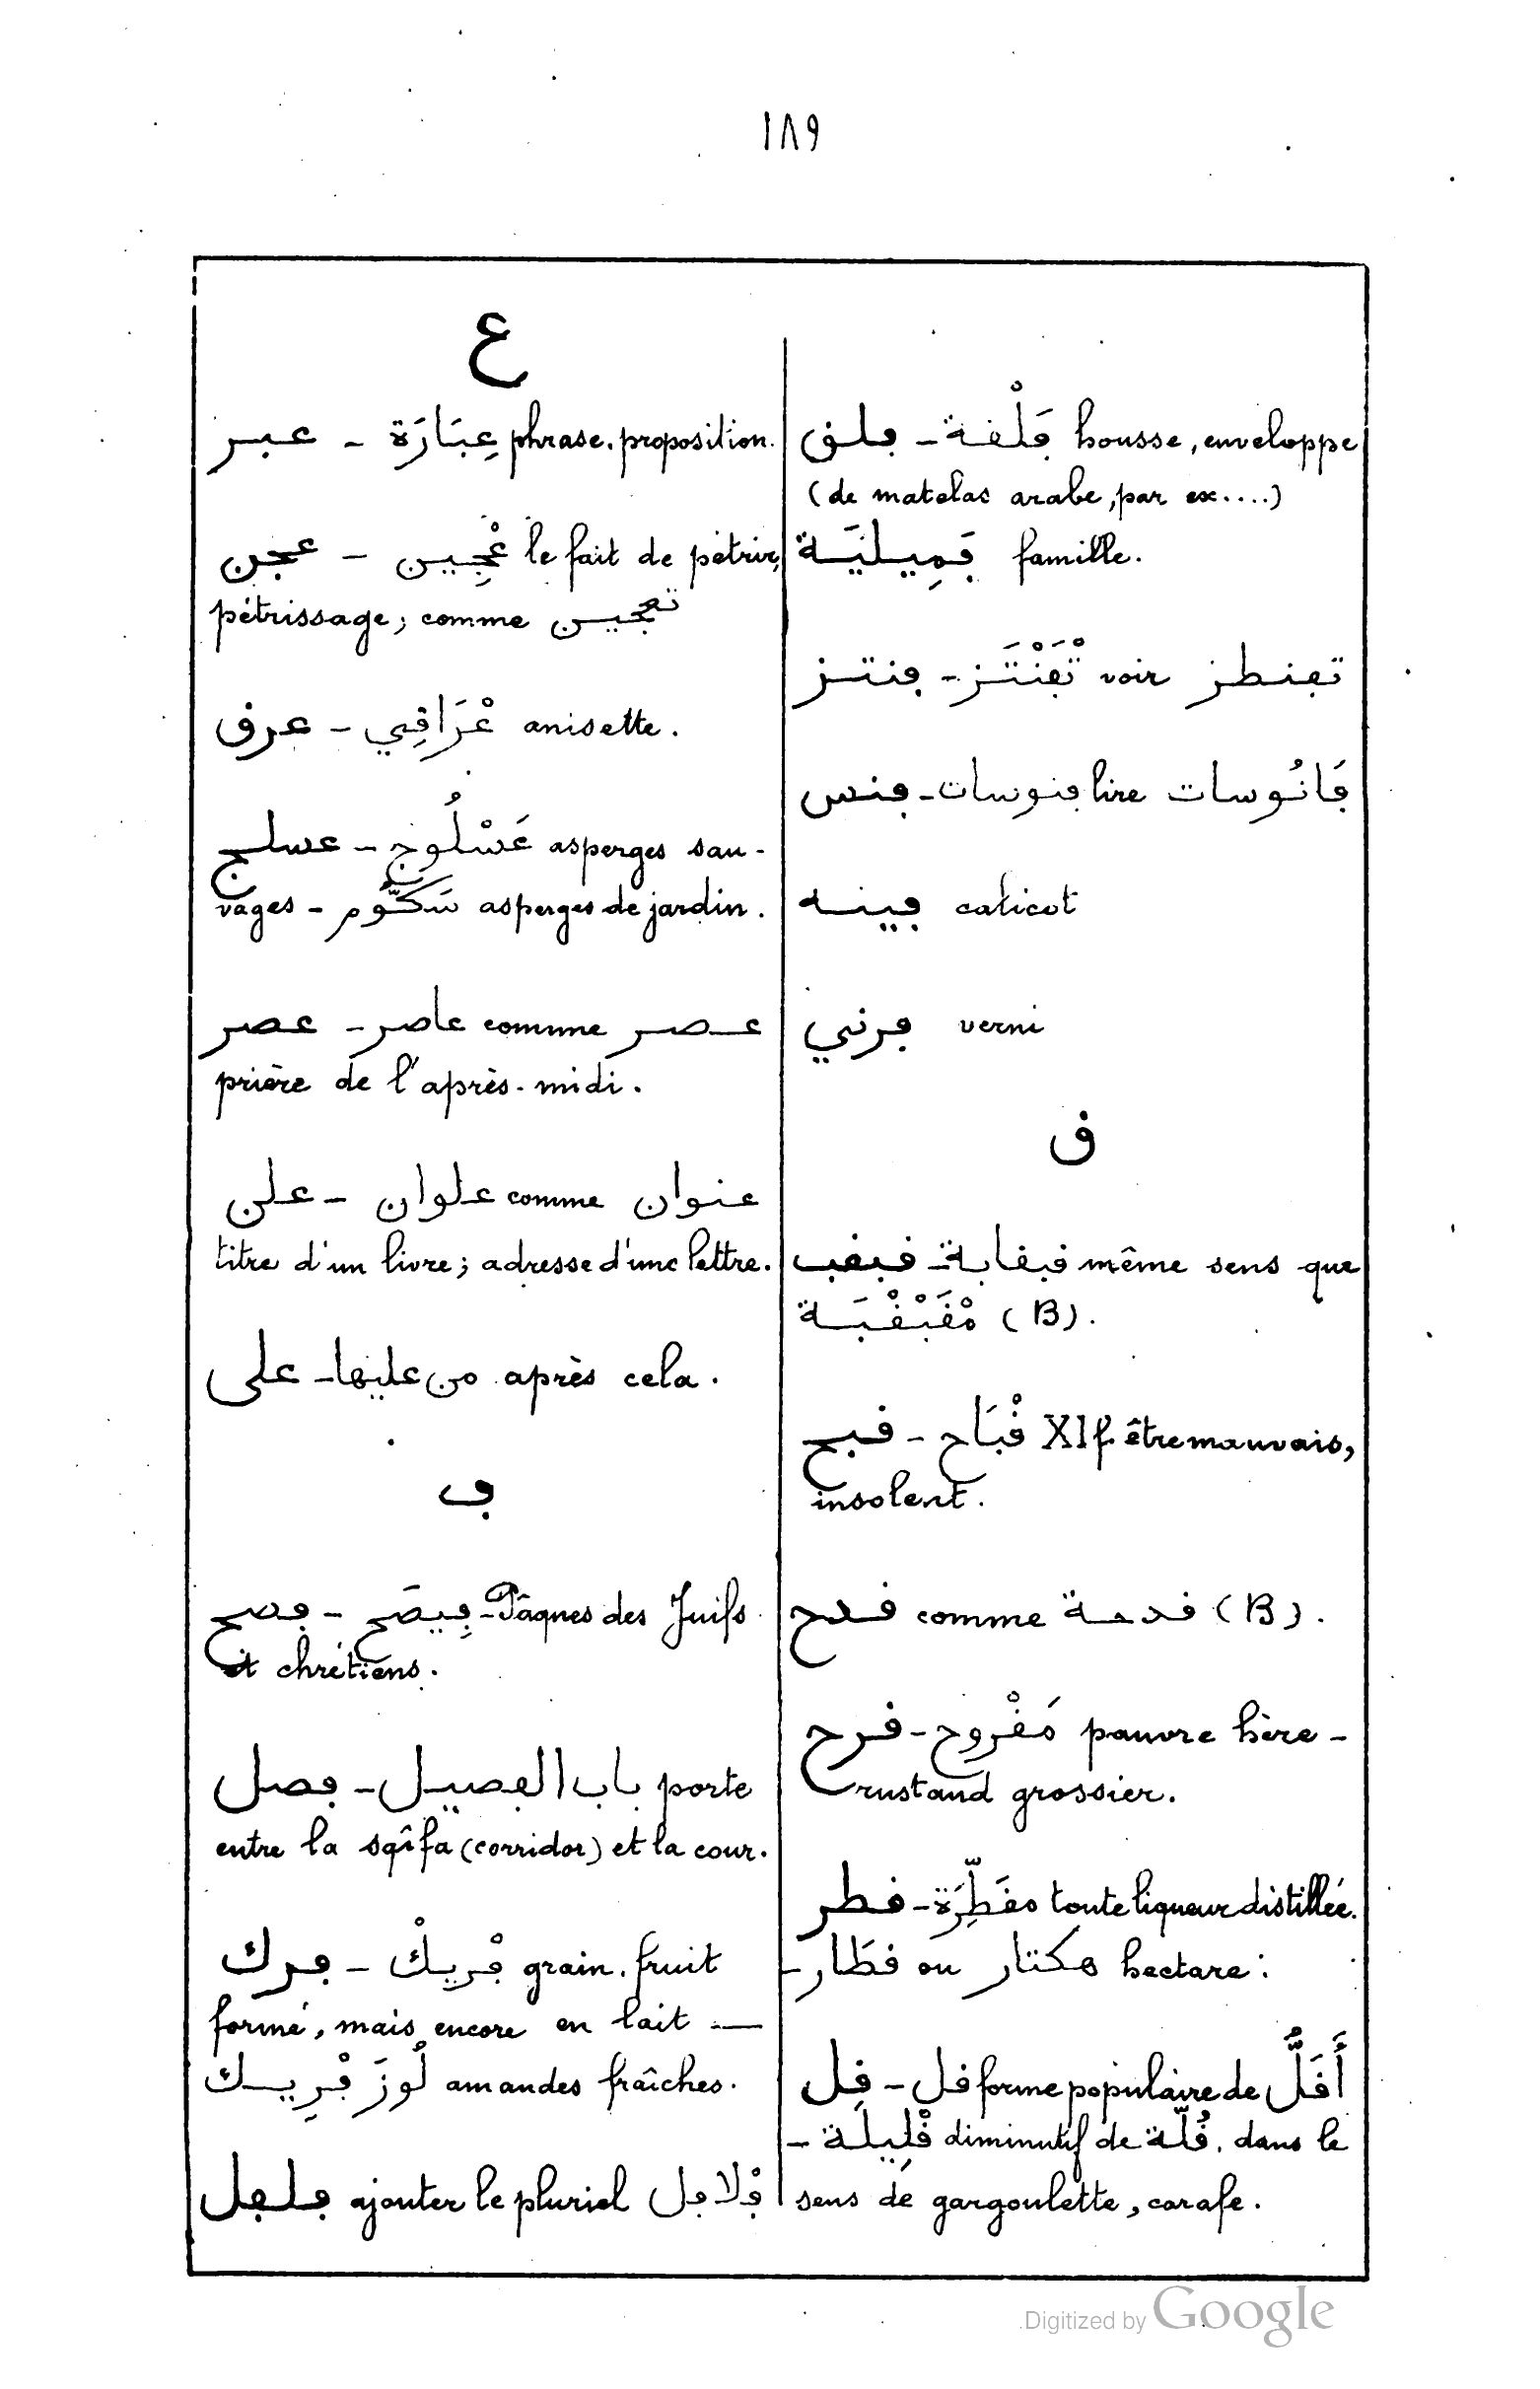 ١٨٩
ع
عبر - عِبَارَة phrase, proposition.
عجن - عْجِين le fait de pétrir,
pétrissage; comme تعجين
عرڧ - عْرَاڧِي anisette.
عسلج - عَسْلُوج asperges sau-
vages - سَكُّوم asperges de jardin.
عصر - عاصر comme عصر
prière de l'après-midi.
علن - علوان comme عنوان
titre d'un livre; adresse d'une lettre.
على - من عليها après cela.
ڢ
ڢصح - ڢِيصَح - Pâques des Juifs
et chrétiens.
ڢصل - باب الڢصيل porte
entre la sqîfa (corridor) et la cour.
ڢرك - ڢْرِيكْ grain, fruit
formé, mais encore en lait —
لُوزَ ڢْرِيك amandes fraîches.
ڢلڢل ajouter le pluriel ڢْلاڢل
ڢلڧ - ڢَلْڧة housse, enveloppe
(de matelas arabe, par ex....)
ڢَمِيلِيَة famille.
ڢنتز - تْڢَنْتَز voir تڢنطز
ڢنس - ڢنوسات lire ڢَانُوسات
ڢينه calicot
ڢرني verni
ڧ
ڧبڧب - ڧبڧابة même sens que
مْڧَبْڧْبَة (B).
ڧبح - ڧْبَاح XI f. être mauvais,
insolent.
ڧدح comme ڧدحة (B).
ڧرح - مَڧْرُوح pauvre hère -
rustaud grossier.
ڧطر - مڧَطِّرَة toute liqueur distillée.
- ڧطَار ou هكتار hectare:
ڧل - ڧِل forme populaire de أَڧَلُّ
- ڧْلِيلَة diminutif de ڧُلَّة, dans le
sens de gargoulette, carafe.
Digitized by Google